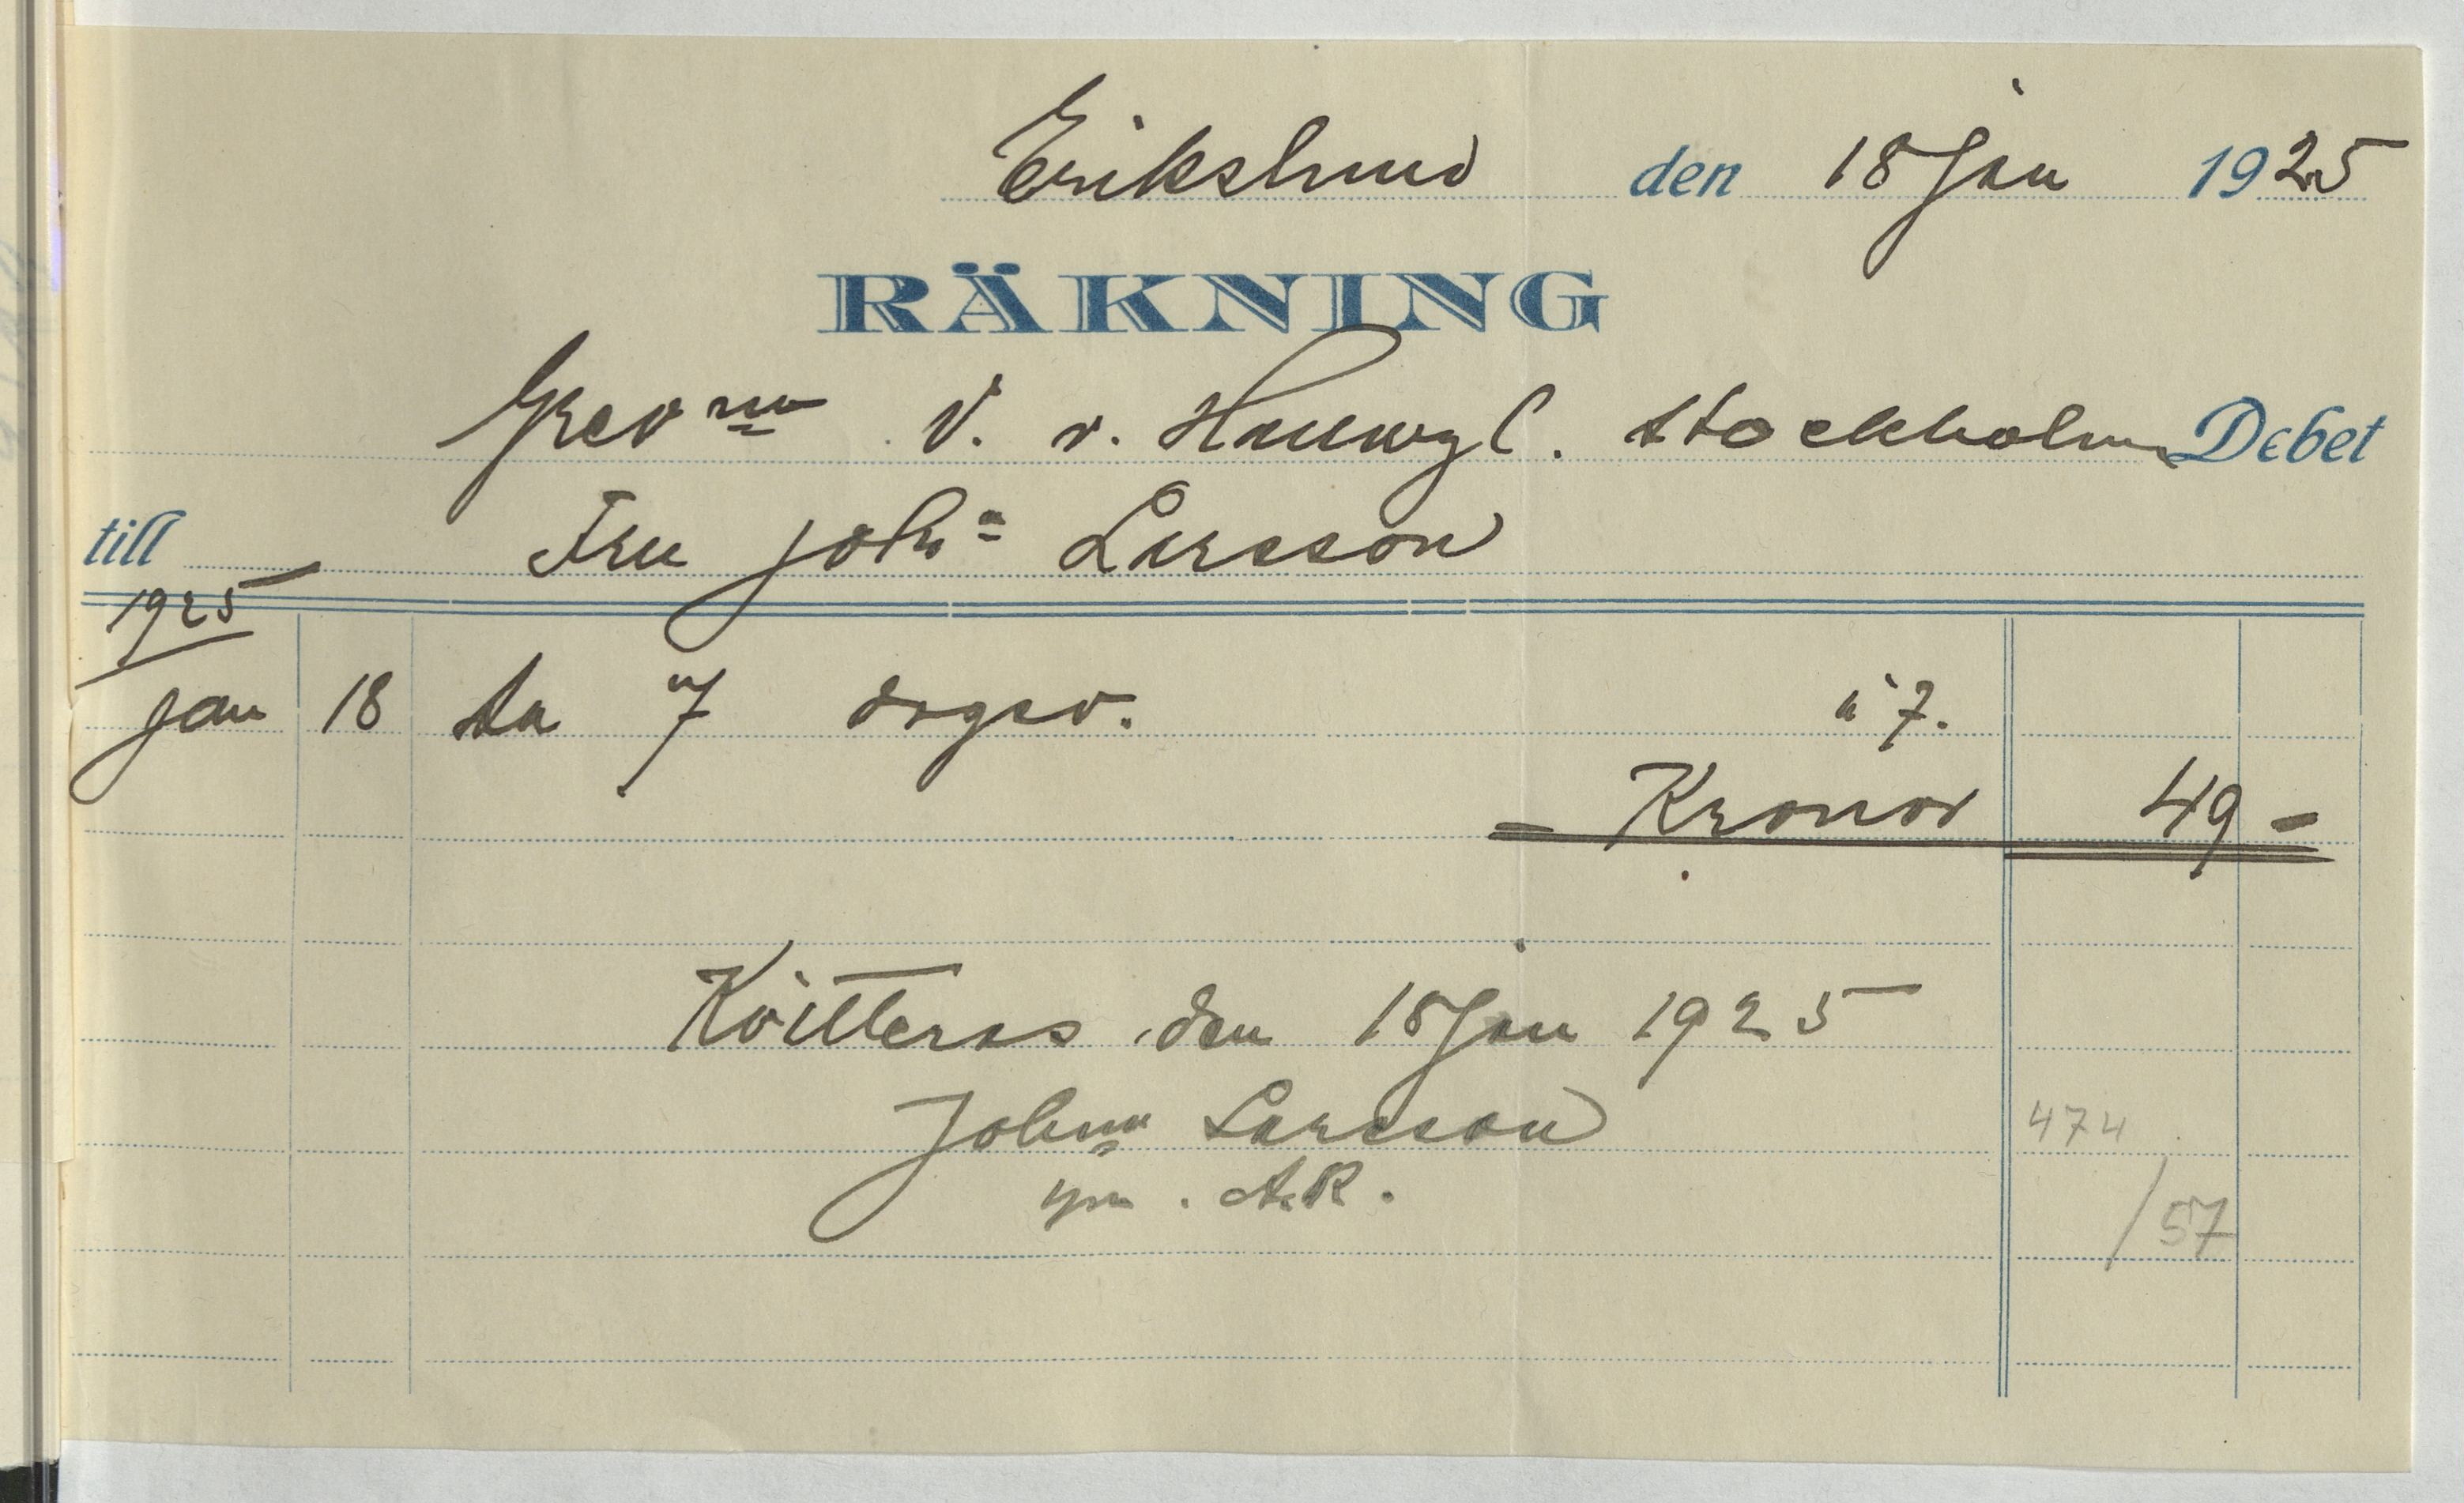 Erikslund den 18 Jan 1925
RÄKNING
Grevna V. v. Hallwyl. Stockholm Debet
till Fru Joha Larsson
1925
Jan 18 Sa 7 dagsv. à 7.
= Kronor 49 =
Kvitteras den 18 Jan 1925
Johna Larsson
gm. A.R.
474
/57